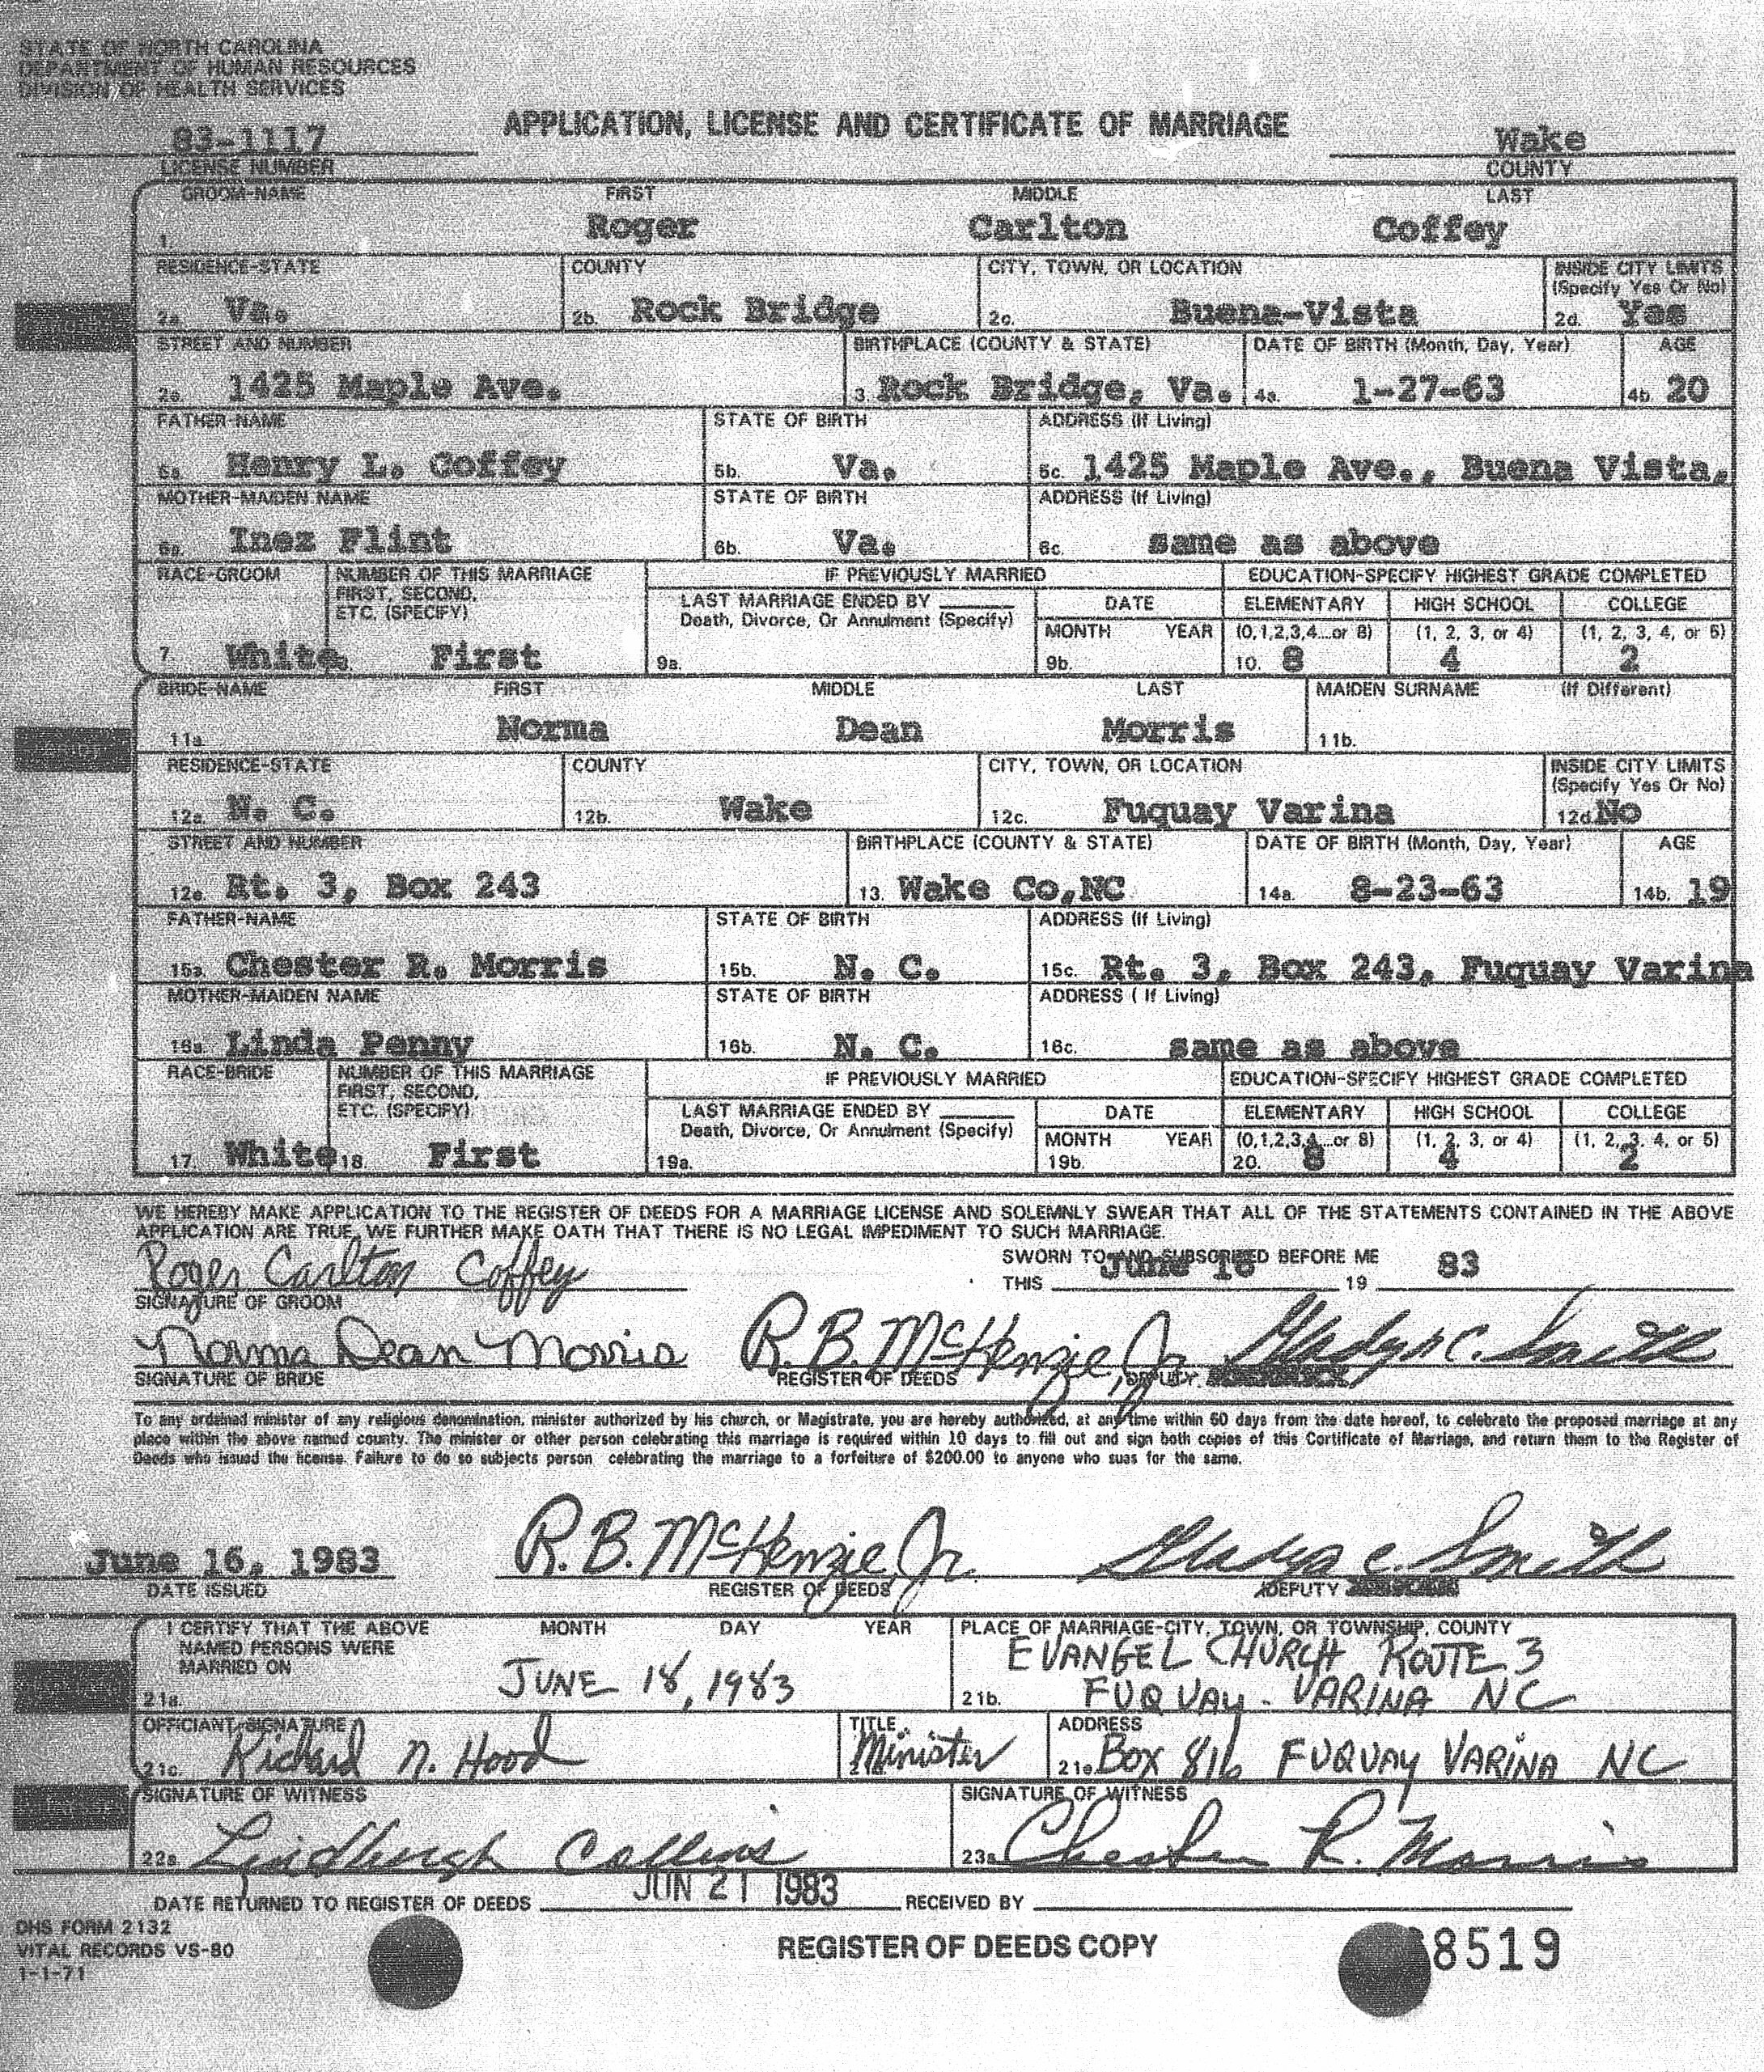 STATE OF NORTH CAROLINA
DEPARTMENT OF HUMAN RESOURCES
DIVISION OF HEALTH SERVICES
83-1117
LICENSE NUMBER
APPLICATION, LICENSE AND CERTIFICATE OF MARRIAGE
Wake
COUNTY
GROOM-NAME FIRST MIDDLE LAST
1. Roger Carlton Coffey
RESIDENCE-STATE COUNTY CITY, TOWN, OR LOCATION INSIDE CITY LIMITS
(Specify Yes Or No)
2a. Va. 2b. Rock Bridge 2c. Buena-Vista 2d. Yes
STREET AND NUMBER BIRTHPLACE (COUNTY & STATE) DATE OF BIRTH (Month, Day, Year) AGE
2e. 1425 Maple Ave. 3. Rock Bridge, Va. 4a. 1-27-63 4b. 20
FATHER-NAME STATE OF BIRTH ADDRESS (If Living)
5a. Henry L. Coffey 5b. Va. 5c. 1425 Maple Ave., Buena Vista,
MOTHER-MAIDEN NAME STATE OF BIRTH ADDRESS (If Living)
6a. Inez Flint 6b. Va. 6c. same as above
RACE-GROOM NUMBER OF THIS MARRIAGE IF PREVIOUSLY MARRIED EDUCATION-SPECIFY HIGHEST GRADE COMPLETED
FIRST, SECOND,
ETC. (SPECIFY) LAST MARRIAGE ENDED BY DATE ELEMENTARY HIGH SCHOOL COLLEGE
Death, Divorce, Or Annulment (Specify) MONTH YEAR (0,1,2,3,4...or 8) (1, 2, 3, or 4) (1, 2, 3, 4, or 5)
7. White First 9a. 9b. 10. 8 4 2
BRIDE-NAME FIRST MIDDLE LAST MAIDEN SURNAME (If Different)
11a Norma Dean Morris 11b.
RESIDENCE-STATE COUNTY CITY, TOWN, OR LOCATION INSIDE CITY LIMITS
(Specify Yes Or No)
12a. N. C. 12b. Wake 12c. Fuquay Varina 12d. No
STREET AND NUMBER BIRTHPLACE (COUNTY & STATE) DATE OF BIRTH (Month, Day, Year) AGE
12e. Rt. 3, Box 243 13. Wake Co,NC 14a. 8-23-63 14b. 19
FATHER-NAME STATE OF BIRTH ADDRESS (If Living)
15a. Chester R. Morris 15b. N. C. 15c. Rt. 3, Box 243, Fuquay Varina
MOTHER-MAIDEN NAME STATE OF BIRTH ADDRESS ( If Living)
16a. Linda Penny 16b. N. C. 16c. same as above
RACE-BRIDE NUMBER OF THIS MARRIAGE IF PREVIOUSLY MARRIED EDUCATION-SPECIFY HIGHEST GRADE COMPLETED
FIRST, SECOND,
ETC. (SPECIFY) LAST MARRIAGE ENDED BY DATE ELEMENTARY HIGH SCHOOL COLLEGE
Death, Divorce, Or Annulment (Specify) MONTH YEAR (0,1,2,3,4...or 8) (1, 2, 3, or 4) (1, 2, 3. 4, or 5)
17. White 18. First 19a. 19b. 20. 8 4 2
WE HEREBY MAKE APPLICATION TO THE REGISTER OF DEEDS FOR A MARRIAGE LICENSE AND SOLEMNLY SWEAR THAT ALL OF THE STATEMENTS CONTAINED IN THE ABOVE
APPLICATION ARE TRUE. WE FURTHER MAKE OATH THAT THERE IS NO LEGAL IMPEDIMENT TO SUCH MARRIAGE.
Roger Carlton Coffey SWORN TO AND SUBSCRIBED BEFORE ME
THIS June 16 19 83
SIGNATURE OF GROOM
Norma Dean Morris R. B. McKenzie, Jr Gladys C. Smith
SIGNATURE OF BRIDE REGISTER OF DEEDS DEPUTY
To any ordained minister of any religious denomination, minister authorized by his church, or Magistrate, you are hereby authorized, at any time within 60 days from the date hereof, to celebrate the proposed marriage at any
place within the above named county. The minister or other person celebrating this marriage is required within 10 days to fill out and sign both copies of this Certificate of Marriage, and return them to the Register of
Deeds who issued the license. Failure to do so subjects person celebrating the marriage to a forfeiture of $200.00 to anyone who sues for the same.
June 16, 1983 R. B. McKenzie, Jr. Gladys C. Smith
DATE ISSUED REGISTER OF DEEDS DEPUTY
I CERTIFY THAT THE ABOVE MONTH DAY YEAR PLACE OF MARRIAGE-CITY, TOWN, OR TOWNSHIP, COUNTY
NAMED PERSONS WERE EVANGEL CHURCH ROUTE 3
MARRIED ON
21a. JUNE 18, 1983 21b. FUQUAY-VARINA NC
OFFICIANT SIGNATURE TITLE ADDRESS
21c. Richard N. Hood Minister 21e. Box 816 FUQUAY VARINA NC
SIGNATURE OF WITNESS SIGNATURE OF WITNESS
22a Lindbergh Collins 23a Chester R. Morris
DATE RETURNED TO REGISTER OF DEEDS JUN 21 1983 RECEIVED BY
DHS FORM 2132
VITAL RECORDS VS-80
1-1-71
REGISTER OF DEEDS COPY
8519